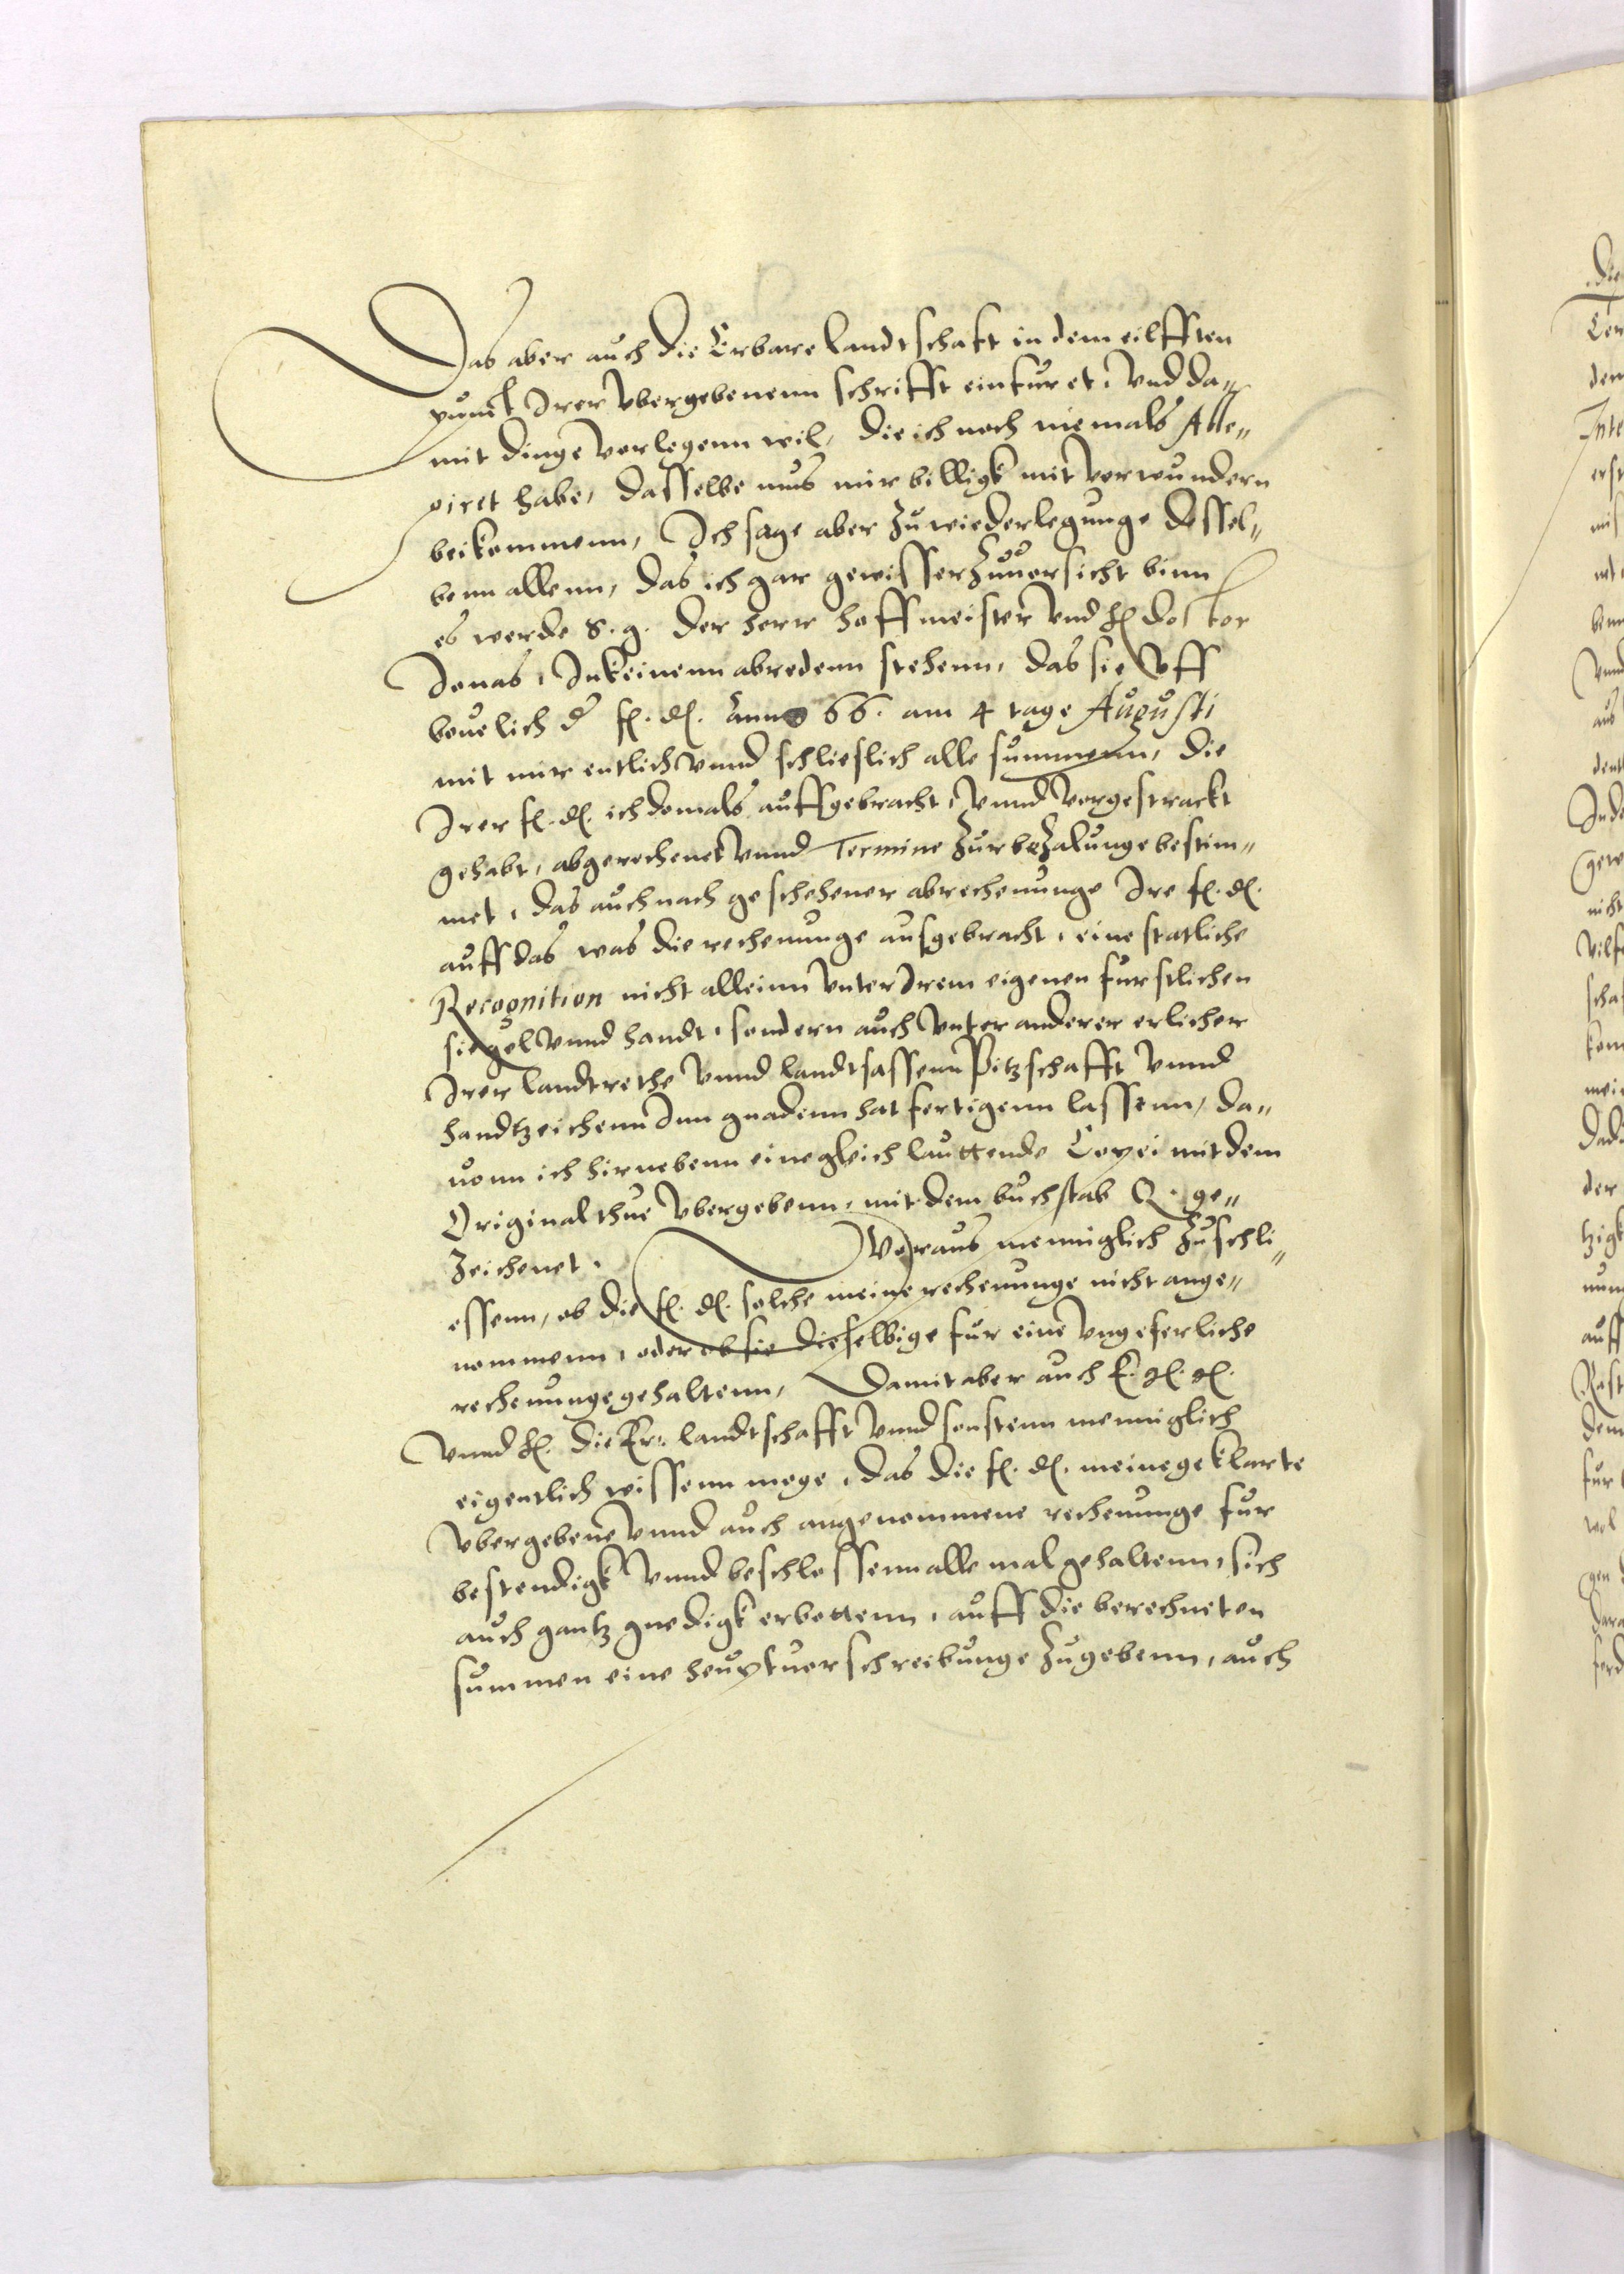 Das aber auch die Erbare landtschaft in dem eilfften
punct Irer vbergebenenn schrifft einfuret, vnd da„
mit dinge vorlegenn wil, die ich noch niemals Atte„
piret habe, dasselbe mus mir billigk mit vorwundern
beikommenn, Ich sage aber zu wiederlegunge dessel„
benn allenn, das ich gar gewisser zuuorsicht binn
es werde S. g. der herr hoffmeister vnd H doktor
Jonas, In keinenn abredenn stehenn, das sie vff
beuelich d F. D. Anno 66. am 4 tage Augusti
mit mir entlich vnnd schlieslich alle summenn, die
Irer F. D. ich domals auffgebracht, vnnd vorgestrackt
gehabt, abgerechenet vnnd Termine zur bezalunge bestim„
met, das auch nach geschehener abrechenunge Ire F. D.
auff das was die rechenunge ausgebracht, eine statliche
Recognition nicht alleinn vnter Irem eigenen furstlichen
siegel vnnd handt, sondern auch vnter anderer erlicher
Irer landtrethe vnnd landtsassenn Pitzschafft vnnd
handtzeichenn Inn gnadenn hat fertigenn lassenn, da„
uonn ich hirnebenn eine gleich lauttende Copei mit dem
Original thue vbergebenn, mit dem buchstab Q. ge„
zeichenet. Woraus menniglich zuschli„
essenn, ob die F. D. solche meine rechenunge nicht ange„
nommenn, oder ob sie dieselbige fur eine vngeferliche
rechenunge gehaltenn, Damit aber auch E.
vnnd H. die Er. landtschafft vnnd sonstenn menniglich
eigentlich wissenn moge, das die F. D. meine geklarte
vbergebene vnnd auch angenommene rechenunge fur
bestendigk vnnd beschlossenn alle mal gehaltenn, sich
auch gantz gnedigk erbottenn, auff die berechneten
summen eine heuptuorschreibunge zugebenn, auch